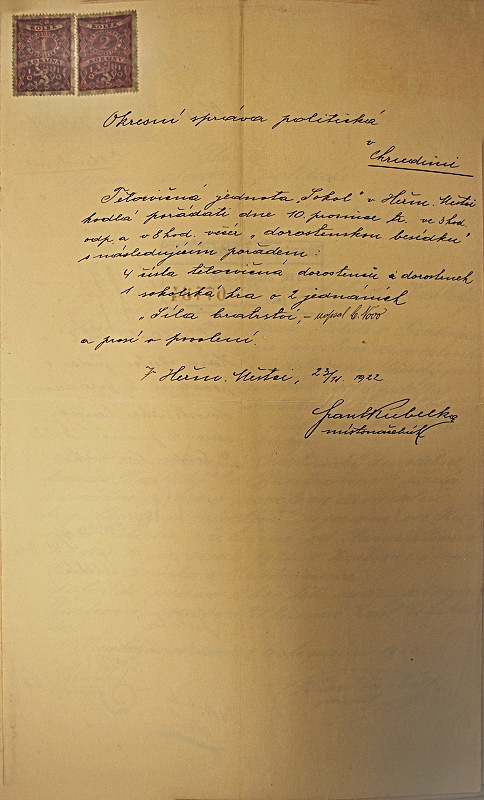 KOLEK KOLEK
1 2
KORUNA KORUNY
Okresní správa politická
v
Chrudimi
Tělocvičná jednota „Sokol" v Heřm. Městci
hodlá pořádati dne 10. prosince t.r. ve 3 hod.
odp. a v 8 hod. večer „dorostenskou besídku"
s následujícím pořadem:
4 čísla tělocvičná dorostenců a dorostenek
1 sokolská hra o 2 jednáních
„Síla bratrství," –
a prosí o povolení.
V Heřm. Městci, 23/11. 1922
Frant. Kubelka
místonáčelník